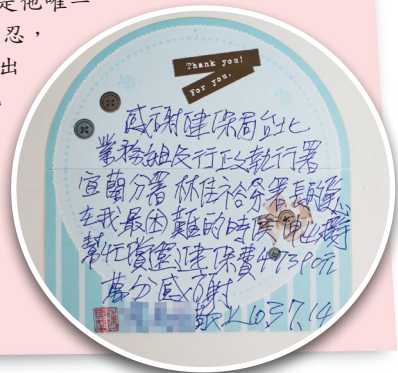 是他唯一
忍，
出
Thank you!
For you.
感謝健保局台北
業務組及行政執行署
宜蘭分署 林佳 分署長的愛心
在我最困難的時候伸出援手
幫忙償還健保費47390元
萬分感謝
敬上 103.7.14